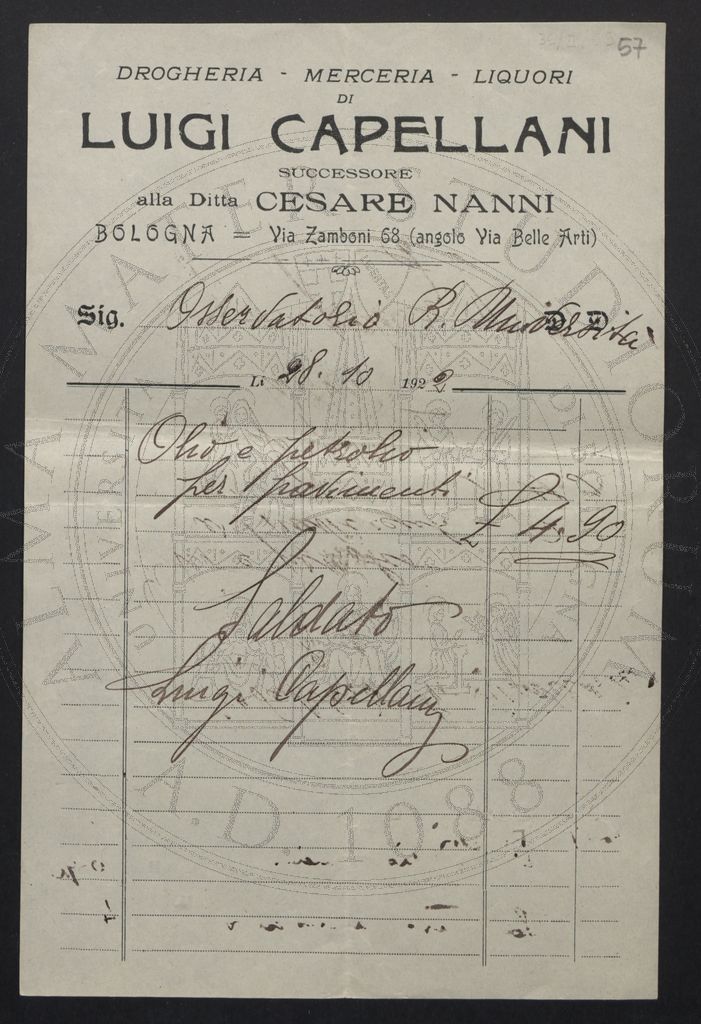 57
DROGHERIA - MERCERIA - LIQUORI
DI
LUIGI CAPELLANI
SUCCESSORE
alla Ditta CESARE NANNI
BOLOGNA = Via Zamboni 68 (angolo Via Belle Arti)
Sig. Osservatorio R. Università D D
Li 28. 10 1922
Olio e petrolio
per pavimenti
£ 4.90
Saldato
Luigi Capellani
ALMA MATER STUDIORUM
A.D. 1088